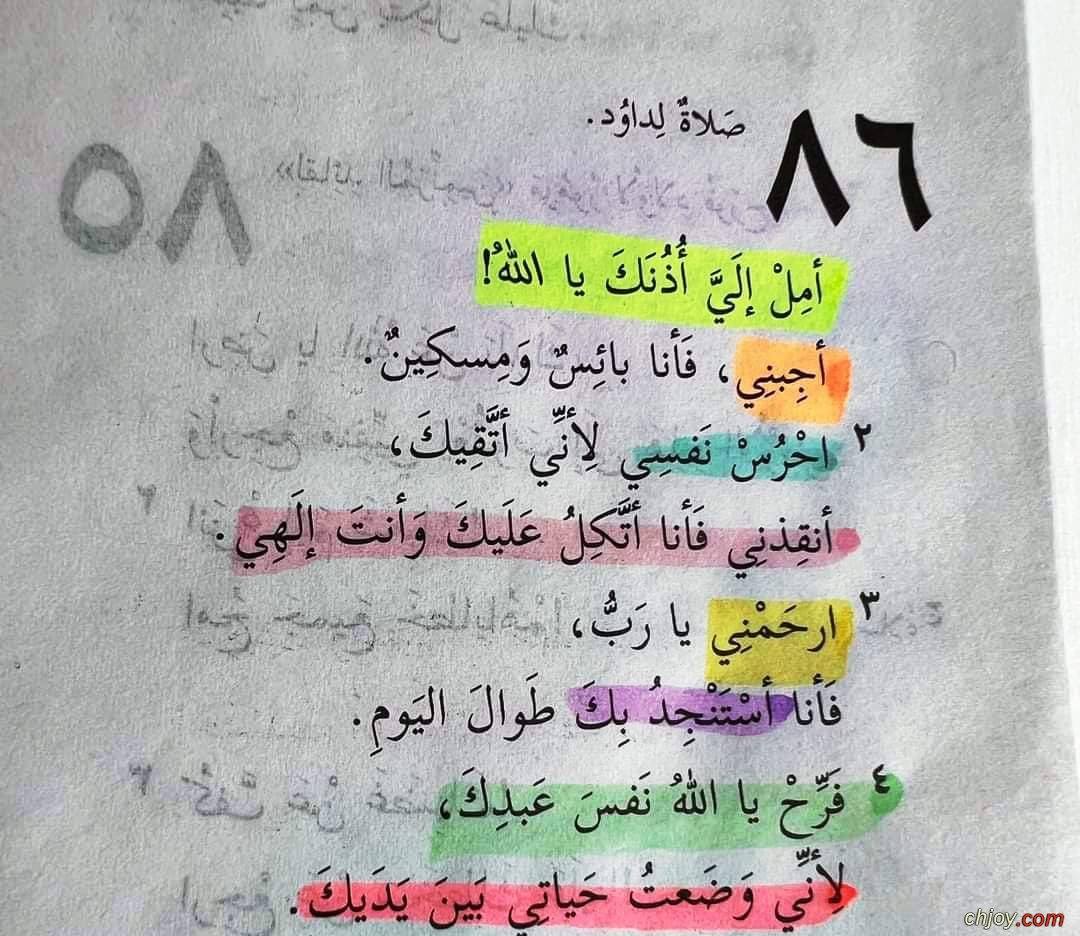 ٨٦ صَلاةٌ لِداوُد.
أمِلْ إلَيَّ أُذُنَكَ يا اللهُ!
أجِبنِي، فَأنا بائِسٌ وَمِسكِينٌ.
٢ احْرُسْ نَفسِي لِأنِّي أتَّقِيكَ،
أنقِذنِي فَأنا أتَّكِلُ عَلَيكَ وَأنتَ إلَهِي.
٣ ارحَمْنِي يا رَبُّ،
فَأنا أسْتَنْجِدُ بِكَ طَوالَ اليَومِ.
٤ فَرِّحْ يا اللهُ نَفسَ عَبدِكَ،
لِأنِّي وَضَعتُ حَياتِي بَينَ يَدَيكَ.
chjoy.com